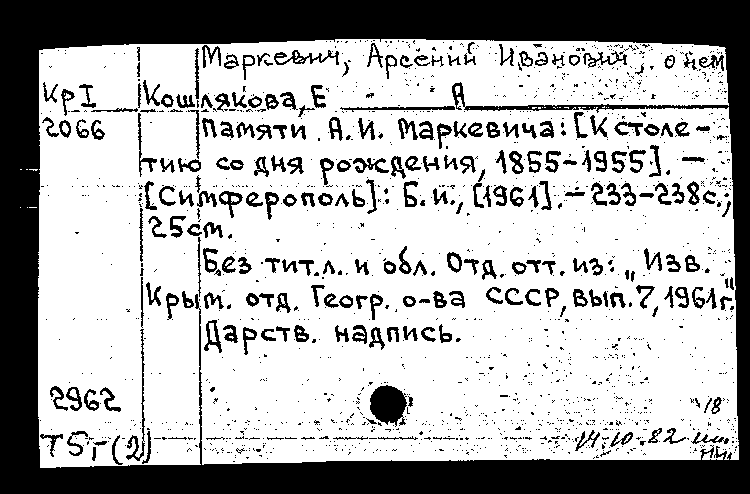 Маркевич, Арсений Иванович, о нем
Кр I Кошлякова, Е А
2066 Памяти А.И. Маркевича: [К столе-
тию со дня рождения, 1855-1955]. —
[Симферополь]: Б.и., [1961]. – 233-238с.;
25см.
Без тит.л. и обл. Отд. отт. из: „Изв.
Крым. отд. Геогр. о-ва СССР, вып.7, 1961г."
Дарств. надпись.
2962
18
Т5,г(2) 14.10.82